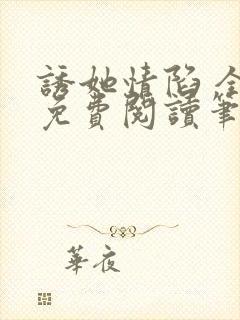 誘她情陷 全
免費閱讀筆
華夜